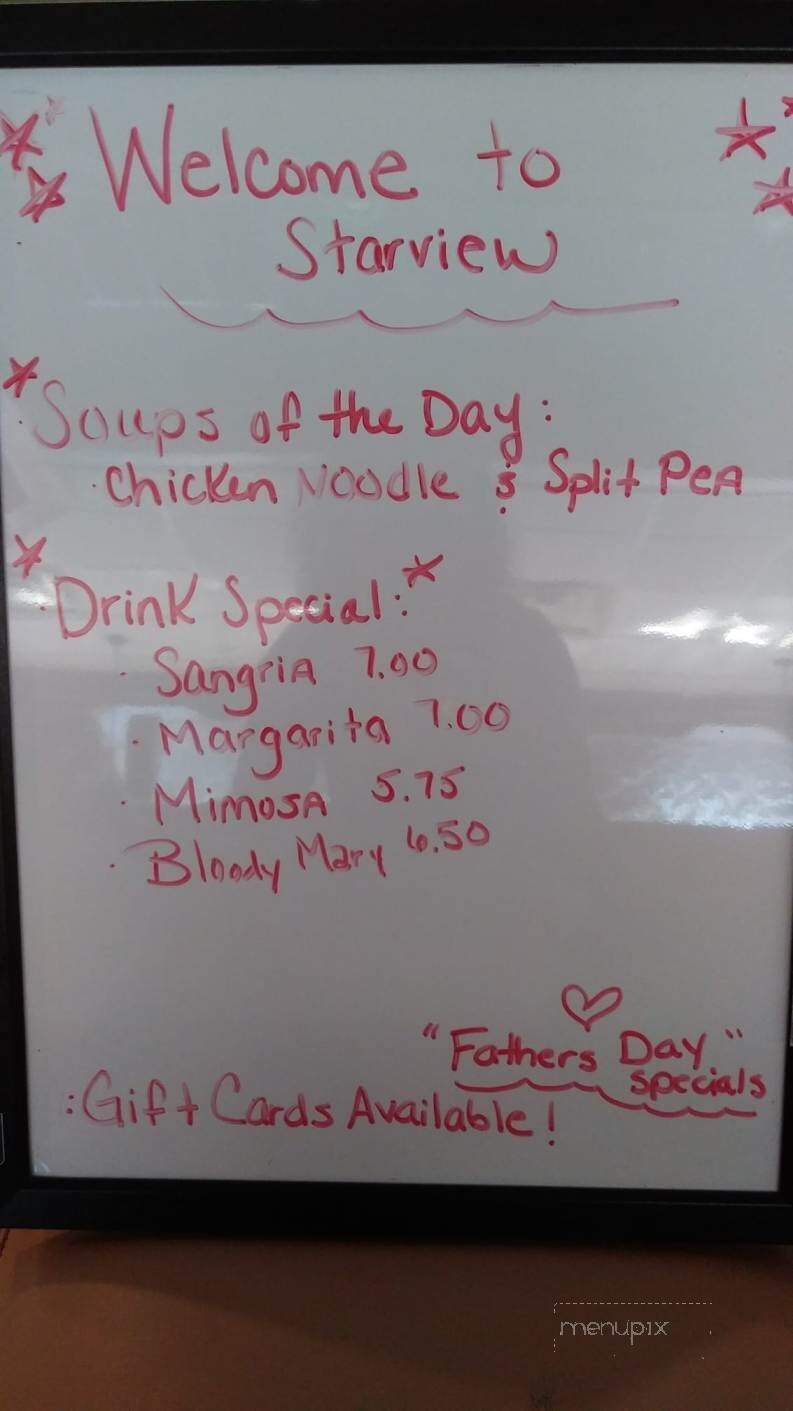 Welcome to
Starview
Soups of the Day:
· Chicken Noodle & Split Pea
Drink Special:
· Sangria 7.00
· Margarita 7.00
· Mimosa 5.75
· Bloody Mary 6.50
"Fathers Day"
specials
: Gift Cards Available!
menupix